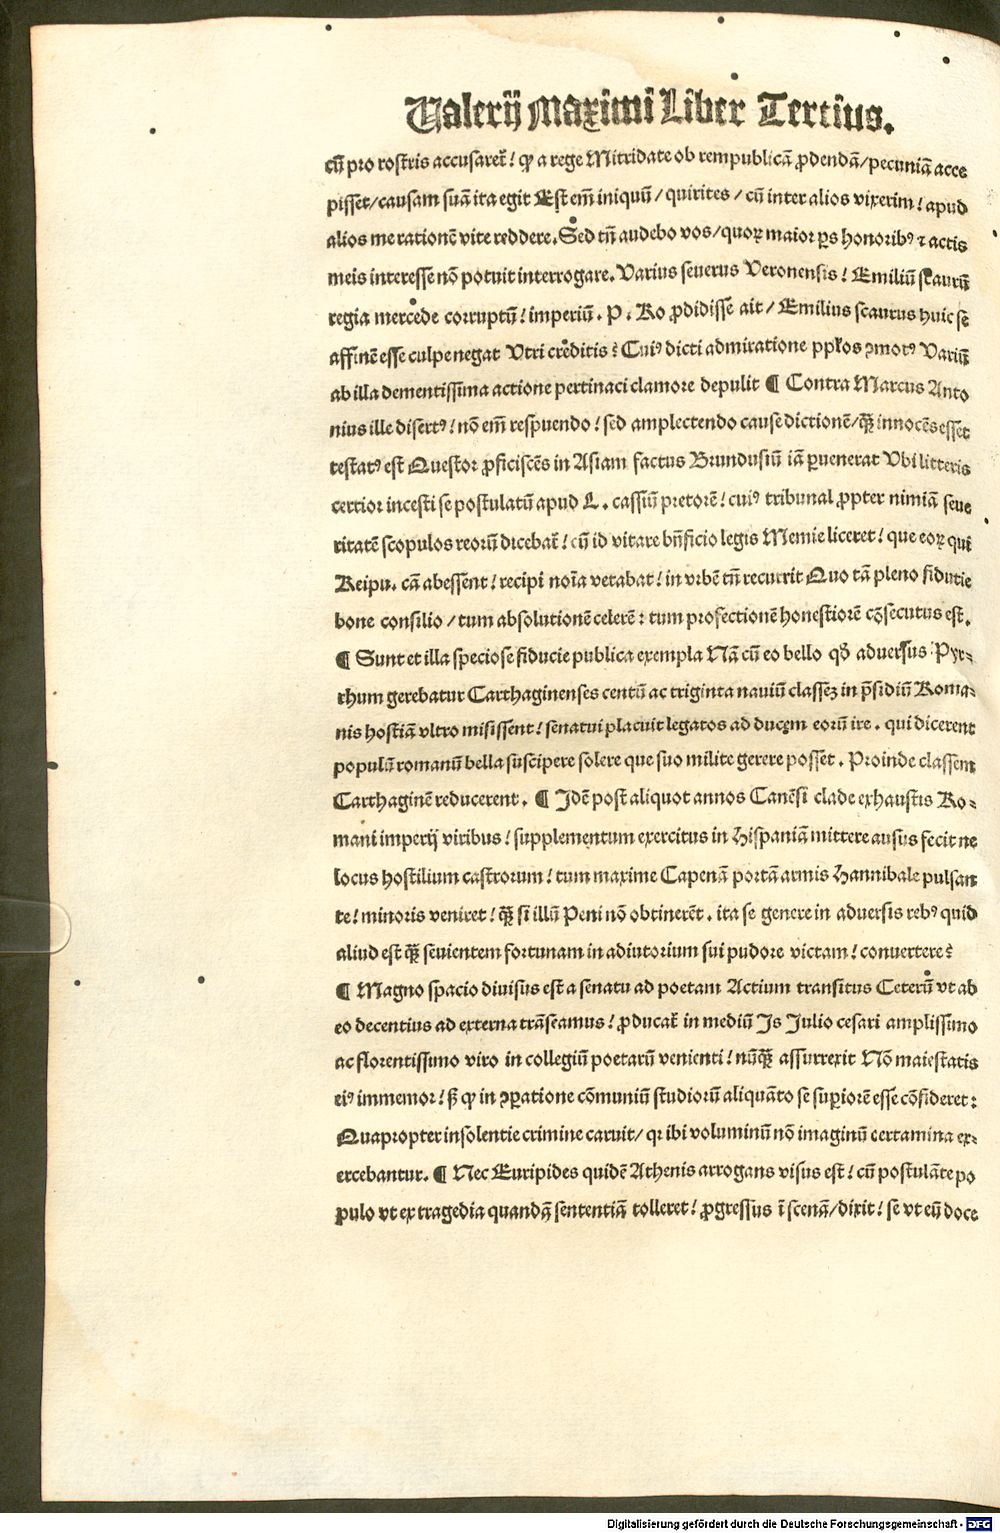 Ualerij Maximi Liber Tertius.
cū pro rostris accusareť! ꝙ a rege Mitridate ob rempublicā ꝓdendā/pecuniā acce
pisset/causam suā ita egit Est em̄ iniquū/quirites/cū inter alios vixerim! apud
alios me rationē vite reddere. Sed tn̄ audebo vos/quoꝝ maior ꝑs honoribꝰ ⁊ actis
meis interesse nō potuit interrogare. Varius seuerus Veronensis! Emiliū scaurū
regia mercede corruptū! imperiū. P. Ro ꝓdidisse ait/Emilius scaurus huic se
affinē esse culpe negat Vtri creditis? Cuiꝰ dicti admiratione ppľos ꝯmotꝰ Variū
ab illa dementissima actione pertinaci clamore depulit ¶ Contra Marcus Anto
nius ille disertꝰ! nō em̄ respuendo! sed amplectendo cause dictionē/ꝙ̄ innocēs esset
testatꝰ est Questor ꝓficiscēs in Asiam factus Brundusiū iā ꝑuenerat Vbi litteris
certior incesti se postulatū apud L. cassiū pretorē! cuiꝰ tribunal ꝓpter nimiā seue
ritatē scopulos reorū dicebať! cū id vitare bn̄ficio legis Memie liceret! que eoꝝ qui
Reipu. cā abessent! recipi noīa vetabat! in vrbē tn̄ recurrit Quo tā pleno fidutie
bone consilio/tum absolutionē celerē: tum profectionē honestiorē cōsecutus est.
¶ Sunt et illa speciose fiducie publica exempla Nā cū eo bello qď aduersus Pyr⸗
rhum gerebatur Carthaginenses centū ac triginta nauiū classeʒ in p̄sidiū Roma⸗
nis hostiā vltro misissent! senatui placuit legatos ad ducem eorū ire. qui dicerent
populū romanū bella suscipere solere que suo milite gerere posset. Proinde classem
Carthaginē reducerent. ¶ Idē post aliquot annos Canēsi clade exhaustis Ro⸗
mani imperij viribus! supplementum exercitus in Hispaniā mittere ausus fecit ne
locus hostilium castrorum! tum maxime Capenā portā armis Hannibale pulsan
te! minoris veniret! ꝙ̄ si illū Peni nō obtinerēt. ita se genere in aduersis rebꝰ quid
aliud est ꝙ̄ seuientem fortunam in adiutorium sui pudore victam! conuertere?
¶ Magno spacio diuisus est a senatu ad poetam Actium transitus Ceterū vt ab
eo decentius ad externa trāseamus! ꝓducať in mediū Is Julio cesari amplissimo
ac florentissimo viro in collegiū poetarū venienti! nūꝙ̄ assurrexit Nō maiestatis
eiꝰ immemor! ß ꝙ in ꝯꝑatione cōmuniū studiorū aliquāto se suꝑiorē esse cōfideret:
Quapropter insolentie crimine caruit/ qꝛ ibi voluminū nō imaginū certamina ex⸗
ercebantur. ¶ Nec Euripides quidē Athenis arrogans visus est! cū postulāte po
pulo vt ex tragedia quandā sententiā tolleret! ꝓgressus ī scenā/dixit! se vt eū doce
Digitalisierung gefördert durch die Deutsche Forschungsgemeinschaft - DFG